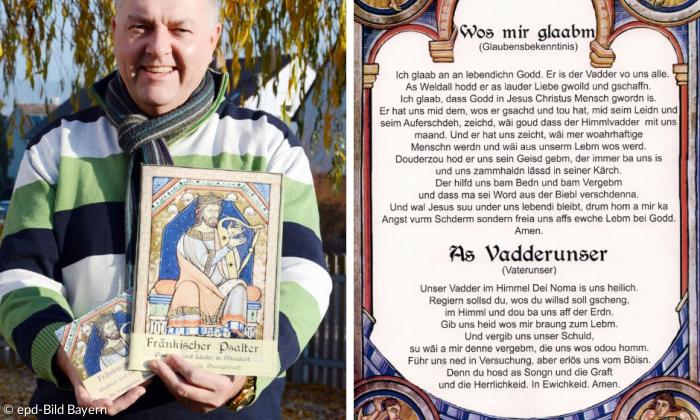 Fränkischer Psalter
und Lieder in Mundart
© epd-Bild Bayern
Wos mir glaabm
(Glaubensbekenntinis)
Ich glaab an an lebendichn Godd. Er is der Vadder vo uns alle.
As Weldall hodd er as lauder Liebe gwolld und gschaffn.
Ich glaab, dass Godd in Jesus Christus Mensch gwordn is.
Er hat uns mid dem, wos er gsachd und tou hat, mid seim Leidn und
seim Auferschdeh, zeichd, wäi goud dass der Himmlvadder mit uns
maand. Und er hat uns zeicht, wäi mer woahrhaftige
Menschn werdn und wäi aus unserm Lebm wos werd.
Douderzou hod er uns sein Geisd gebm, der immer ba uns is
und uns zammhaldn lässd in seiner Kärch.
Der hilfd uns bam Bedn und bam Vergebm
und dass ma sei Word aus der Biebl verschdenna.
Und wal Jesus suu under uns lebendi bleibt, drum hom a mir ka
Angst vurm Schderm sondern freia uns affs ewche Lebm bei Godd.
Amen.
As Vadderunser
(Vaterunser)
Unser Vadder im Himmel Dei Noma is uns heilich.
Regiern sollsd du, wos du willsd soll gscheng,
im Himml und dou ba uns aff der Erdn.
Gib uns heid wos mir braung zum Lebm.
Und vergib uns unser Schuld,
su wäi a mir denne vergebm, die uns wos odou homm.
Führ uns ned in Versuchung, aber erlös uns vom Böisn.
Denn du hosd as Songn und die Graft
und die Herrlichkeid. In Ewichkeid. Amen.